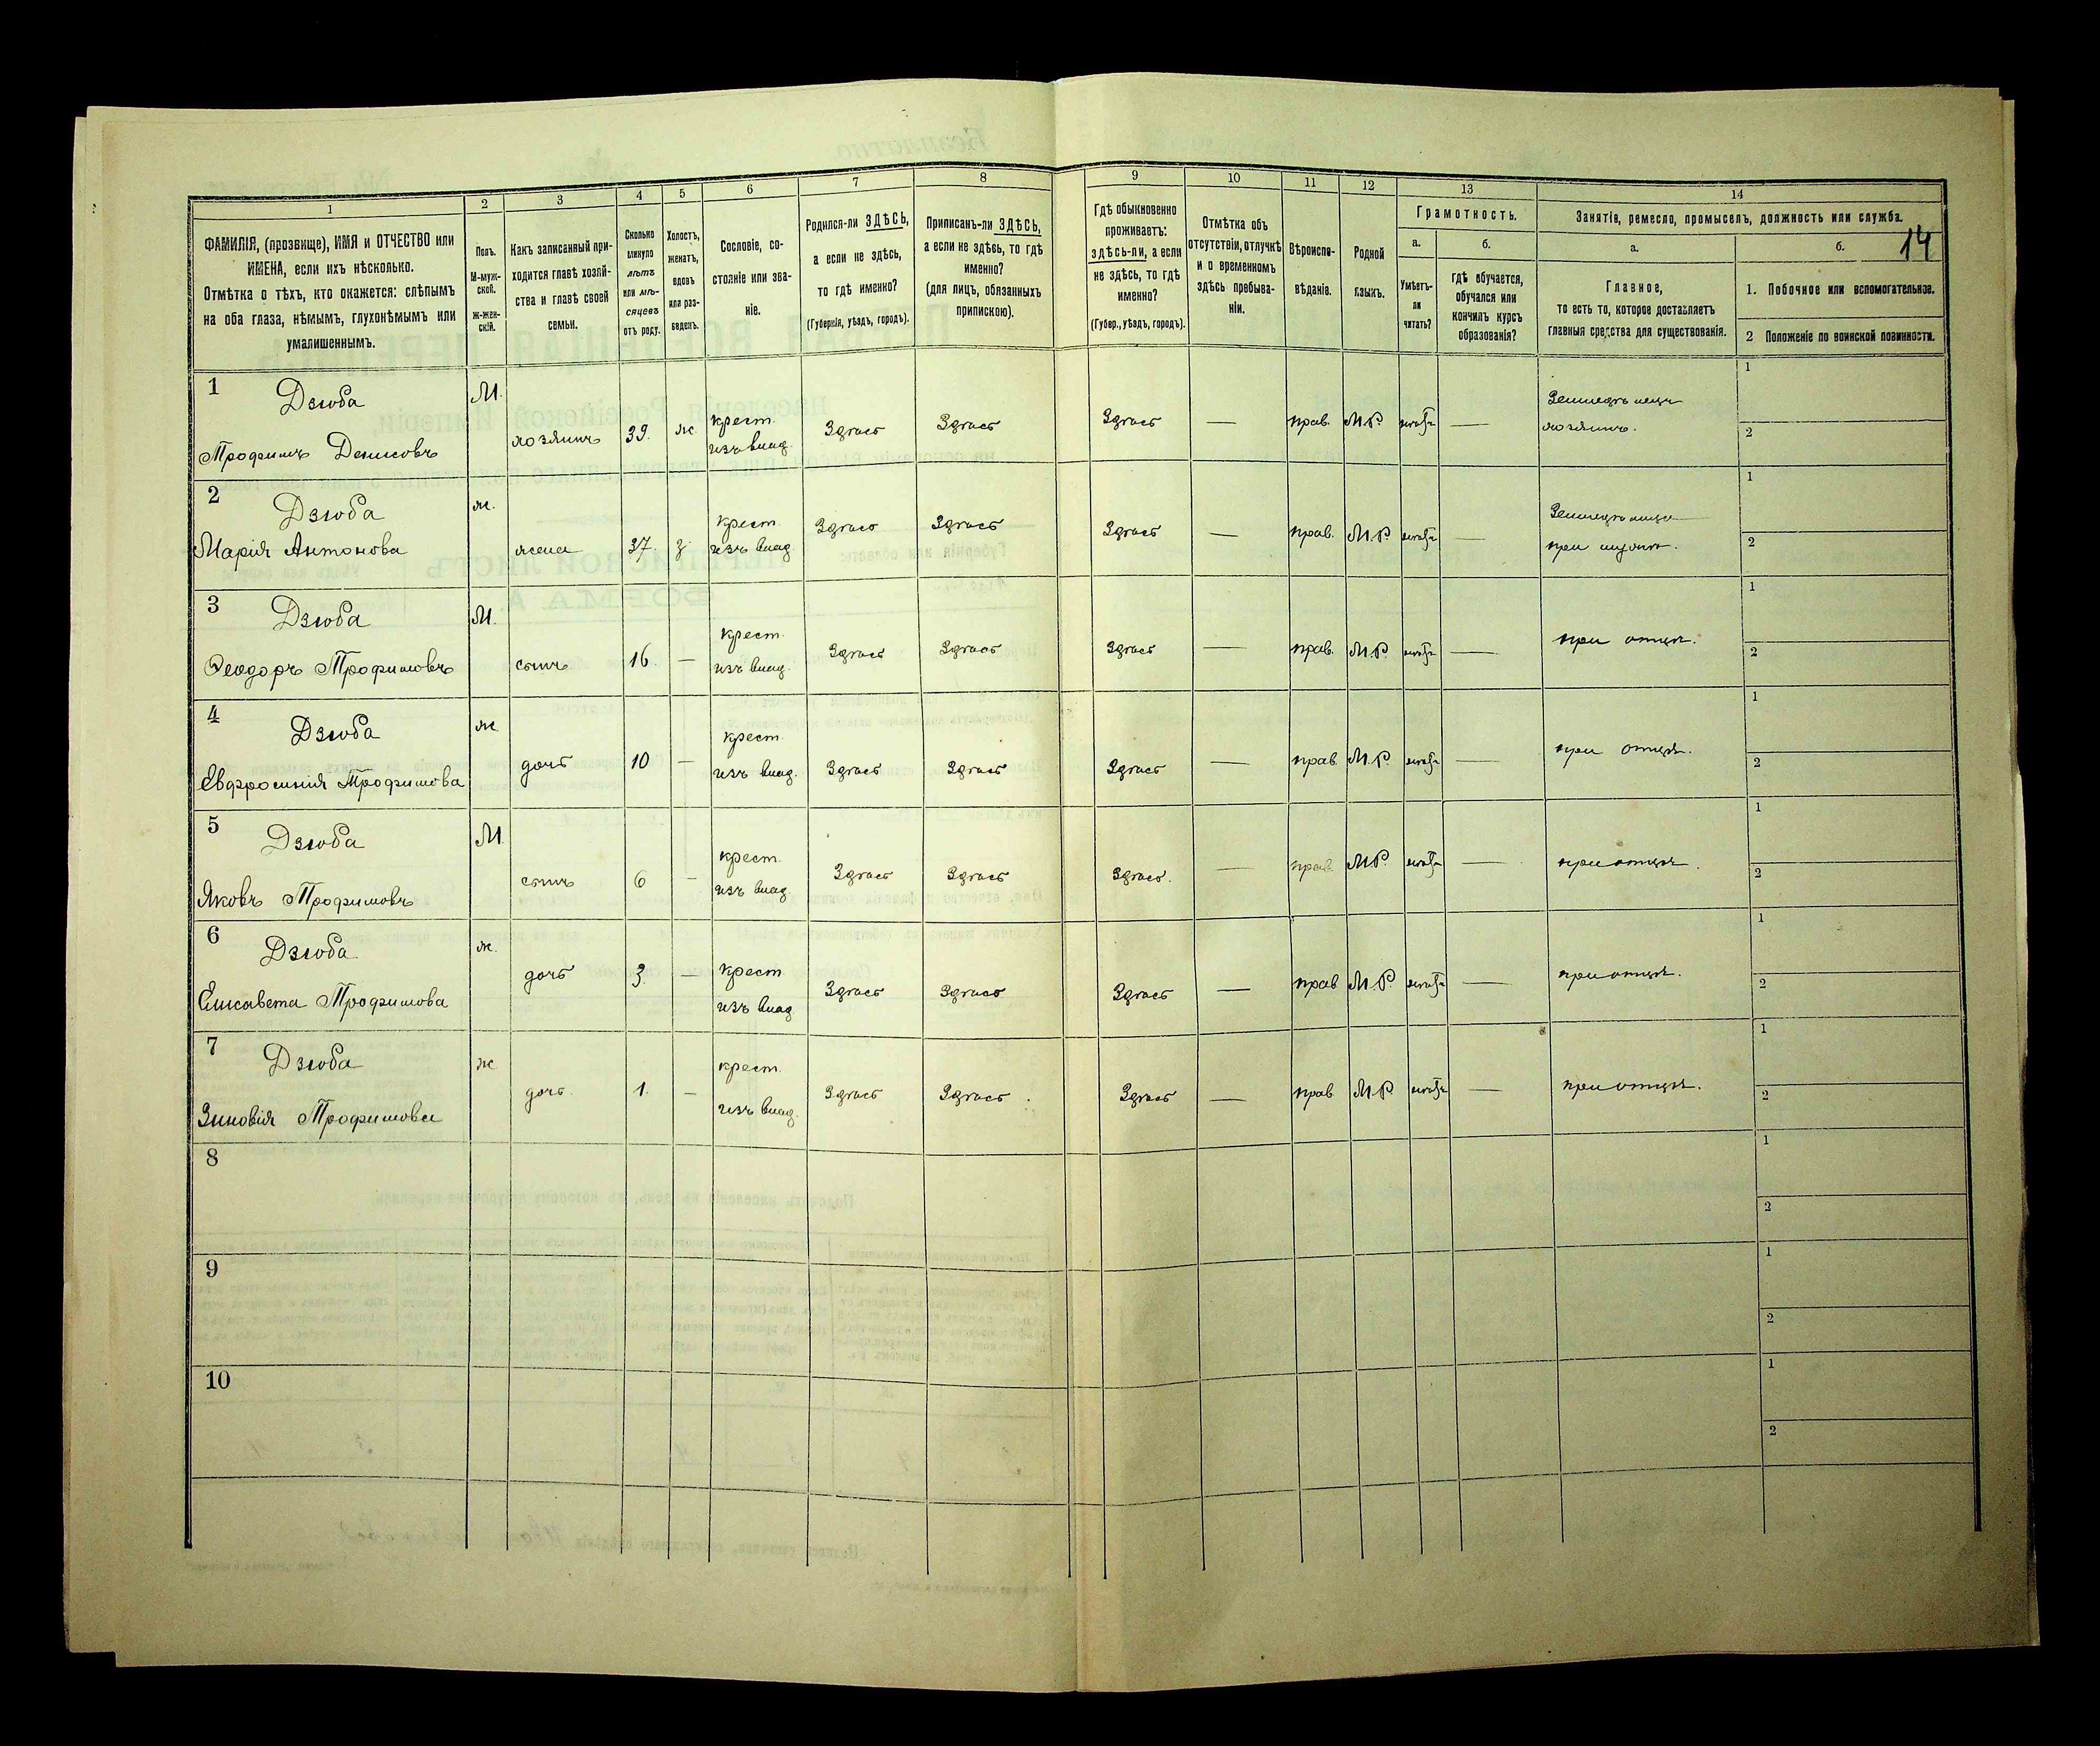 1 2 3 4 5 6 7 8 9 10 11 12 13 14
14
ФАМИЛІЯ, (прозвище), ИМЯ и ОТЧЕСТВО или
ИМЕНА, если ихъ нѣсколько.
Отмѣтка о тѣхъ, кто окажется: слѣпымъ
на оба глаза, нѣмымъ, глухонѣмымъ или
умалишеннымъ.
Полъ.
М-муж-
ской.
Ж-жен-
скій.
Какъ записанный при-
ходится главѣ хозяй-
ства и главѣ своей
семьи.
Сколько
минуло
лѣтъ
или мѣ-
сяцевъ
отъ роду.
Холостъ,
женатъ,
вдовъ
или раз-
веденъ.
Сословіе, со-
стояніе или зва-
ніе.
Родился-ли ЗДѢСЬ,
а если не здѣсь,
то гдѣ именно?
(Губернія, уѣздъ, городъ).
Приписанъ-ли ЗДѢСЬ,
а если не здѣсь, то гдѣ
именно?
(для лицъ, обязанныхъ
припискою).
Гдѣ обыкновенно
проживаетъ:
здѣсь-ли, а если
не здѣсь, то гдѣ
именно?
(Губер., уѣздъ, городъ).
Отмѣтка объ
отсутствіи, отлучкѣ
и о временномъ
здѣсь пребыва-
ніи.
Вѣроиспо-
вѣданіе.
Родной
языкъ.
Грамотность.
а.
Умѣетъ-
ли
читать?
б.
гдѣ обучается,
обучался или
кончилъ курсъ
образованія?
Занятіе, ремесло, промыселъ, должность или служба.
а.
Главное,
то есть то, которое доставляетъ
главныя средства для существованія.
б.
1. Побочное или вспомогательное.
2 Положеніе по воинской повинности.
1 Дзюба
Трофимъ Денисовъ
М.
хозяинъ
39.
ж.
крест.
изъ влад.
Здѣсь
Здѣсь
Здѣсь
—
прав.
М.Р.
нѣтъ
—
Земледѣлецъ
хозяинъ.
1
2
2 Дзюба
Марія Антонова
ж.
жена
37.
з.
крест.
изъ влад.
Здѣсь
Здѣсь
Здѣсь
—
прав.
М.Р.
нѣтъ
—
при мужѣ.
1
2
3 Дзюба
Ѳеодоръ Трофимовъ
М.
сынъ
16.
—
крест.
изъ влад.
Здѣсь
Здѣсь
Здѣсь
—
прав.
М.Р.
нѣтъ
—
при отцѣ.
1
2
4 Дзюба
Евфросинія Трофимова
ж.
дочь
10
—
крест.
изъ влад.
Здѣсь
Здѣсь
Здѣсь
—
прав.
М.Р.
нѣтъ
—
при отцѣ.
1
2
5 Дзюба
Яковъ Трофимовъ
М.
сынъ
6
—
крест.
изъ влад.
Здѣсь
Здѣсь
Здѣсь.
—
прав.
М.Р.
нѣтъ
—
при отцѣ.
1
2
6 Дзюба
Елисавета Трофимова
ж.
дочь
3.
—
крест
изъ влад
Здѣсь
Здѣсь
Здѣсь
—
прав
М.Р.
нѣтъ
—
при отцѣ.
1
2
7 Дзюба
Зиновія Трофимова
ж
дочь.
1.
—
крест.
изъ влад.
Здѣсь
Здѣсь.
Здѣсь
—
прав
М.Р.
нѣтъ
—
при отцѣ.
1
2
8
1
2
9
1
2
10
1
2